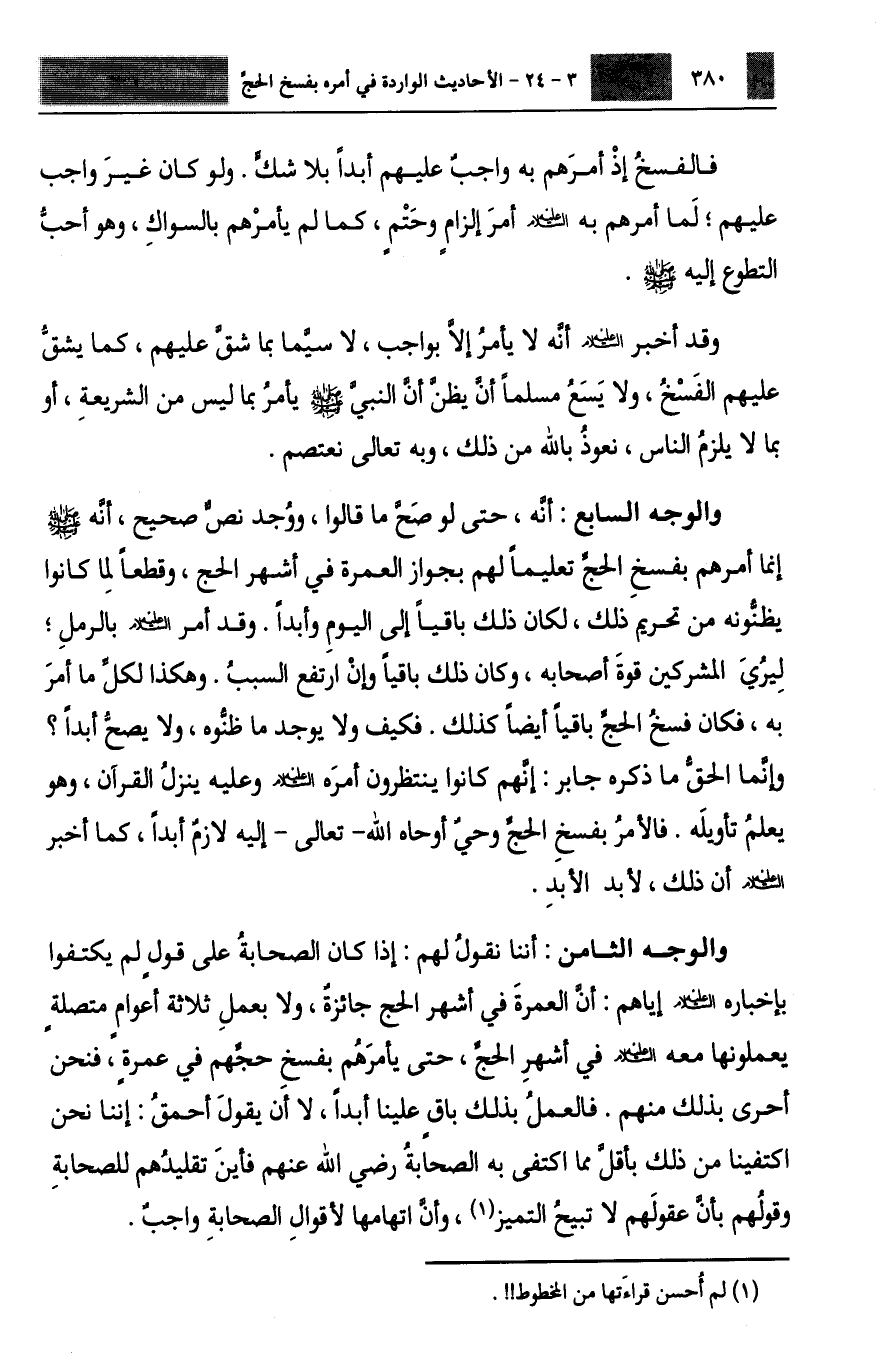 ٣٨٠ ٣ - ٢٤ - الأحاديث الواردة في أمره بفسخ الحجِّ
فـالـفـسـخُ إذْ أمـرَهم به واجبٌ عليـهم أبداً بلا شكٍّ . ولو كـان غـيـرَ واجب
عليـهم ؛ لَمـا أمرهم بـه عليه السلام أمرَ إلزامٍ وحَتْمٍ ، كـمـا لم يأمـرْهم بالسـواكِ ، وهو أحبُّ
التطوع إليه ﷺ .
وقـد أخبـر عليه السلام أنَّه لا يأمـرُ إلاَّ بواجب ، لا سيَّما بما شقَّ عليـهم ، كـمـا يشقُّ
عليـهم الفَسْخُ ، ولا يَسَعُ مسلمـاً أنَّ يظنَّ أنَّ النبيَّ ﷺ يأمرُ بما ليس من الشريعةِ ، أو
بما لا يلزمُ الناس ، نعوذُ بالله من ذلك ، وبه تعالى نعتصم .
والوجـه السـابع : أنَّه ، حتى لو صَحَّ ما قالوا ، ووُجد نصٌّ صحيح ، أنَّه ﷺ
إنما أمـرهم بفـسخِ الحجِّ تعليـمـاً لهم بجواز العـمـرة في أشـهـر الحج ، وقطعـاً لِما كـانوا
يظنُّونه من تحريم ذلك ، لكان ذلك باقيـاً إلى اليـومِ وأبداً . وقـد أمـر عليه السلام بالرملِ ؛
لِيرُيَ المشركين قوةَ أصحابه ، وكان ذلك باقياً وإنْ ارتفع السببُ . وهكذا لكلِّ ما أمرَ
به ، فكان فسخُ الحجِّ باقياً أيضاً كذلك . فكيف ولا يوجد ما ظنُّوه ، ولا يصحُّ أبداً ؟
وإنَّمـا الحقُّ ما ذكره جـابر : إنَّهم كانوا ينتظرون أمرَه عليه السلام وعليه ينزلُ القـرآن ، وهو
يعلمُ تأويلَه . فالأمرُ بفسخِ الحجِّ وحيٌ أوحاه الله- تعالى - إليه لازمٌ أبداً ، كـمـا أخبر
عليه السلام أن ذلك ، لأبد الأبدِ .
والوجـــه الثـــامن : أننا نقولُ لهم : إذا كان الصحـابةُ على قولٍ لم يكتـفـوا
بإخباره عليه السلام إياهم : أنَّ العمرةَ في أشهر الحج جائزةٌ ، ولا بعملِ ثلاثة أعوامٍ متصلةٍ
يعملونها معـه عليه السلام في أشهرِ الحجِّ ، حتى يأمرَهُم بفسخِ حجِّهم في عمرةٍ ، فنحن
أحرى بذلك منهم . فالعملُ بذلك باقٍ علينا أبداً ، لا أن يقولَ أحمقُ : إننا نحن
اكتفينا من ذلك بأقلَّ مما اكتفى به الصحابةُ رضي الله عنهم فأينَ تقليدُهم للصحابةِ
وقولُهم بأنَّ عقولَهم لا تبيحُ التميز(١) ، وأنَّ اتهامها لأقوالِ الصحابةِ واجبٌ .
(١) لم أُحسن قراءَتها من المخطوط!! .